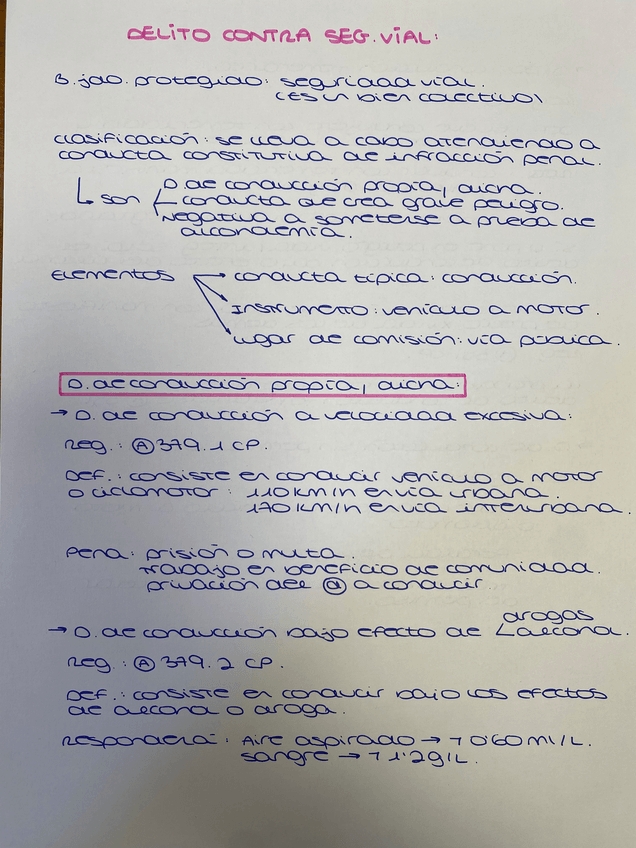 DELITO CONTRA SEG.VIAL:
B. jco. protegido: seguridad vial.
(es un bien colectivo)
Clasificación: se lleva a cabo atendiendo a
conducta constitutiva de infracción penal.
son
D. de conducción propia, dicha.
conducta que crea grave peligro.
Negativa a someterse a prueba de
alcoholemia.
Elementos
conducta típica: conducción.
Instrumento: vehículo a motor.
Lugar de comisión: vía pública.
D. de conducción propia, dicha:
→ D. de conducción a velocidad excesiva:
Reg.: Ⓐ 379.1 CP.
Def.: consiste en conducir vehículo a motor
o ciclomotor: 110 km/h en vía urbana.
170 km/h en vía interurbana.
Pena: prisión o multa.
Trabajo en beneficio de comunidad.
privación del ⓓ a conducir.
drogas
→ D. de conducción bajo efecto de alcohol.
Reg.: Ⓐ 379.2 CP.
Def.: consiste en conducir bajo los efectos
de alcohol o droga.
Responderá: Aire aspirado → ↑ 0'60 ml/L.
sangre → ↑ 1'2 g/L.